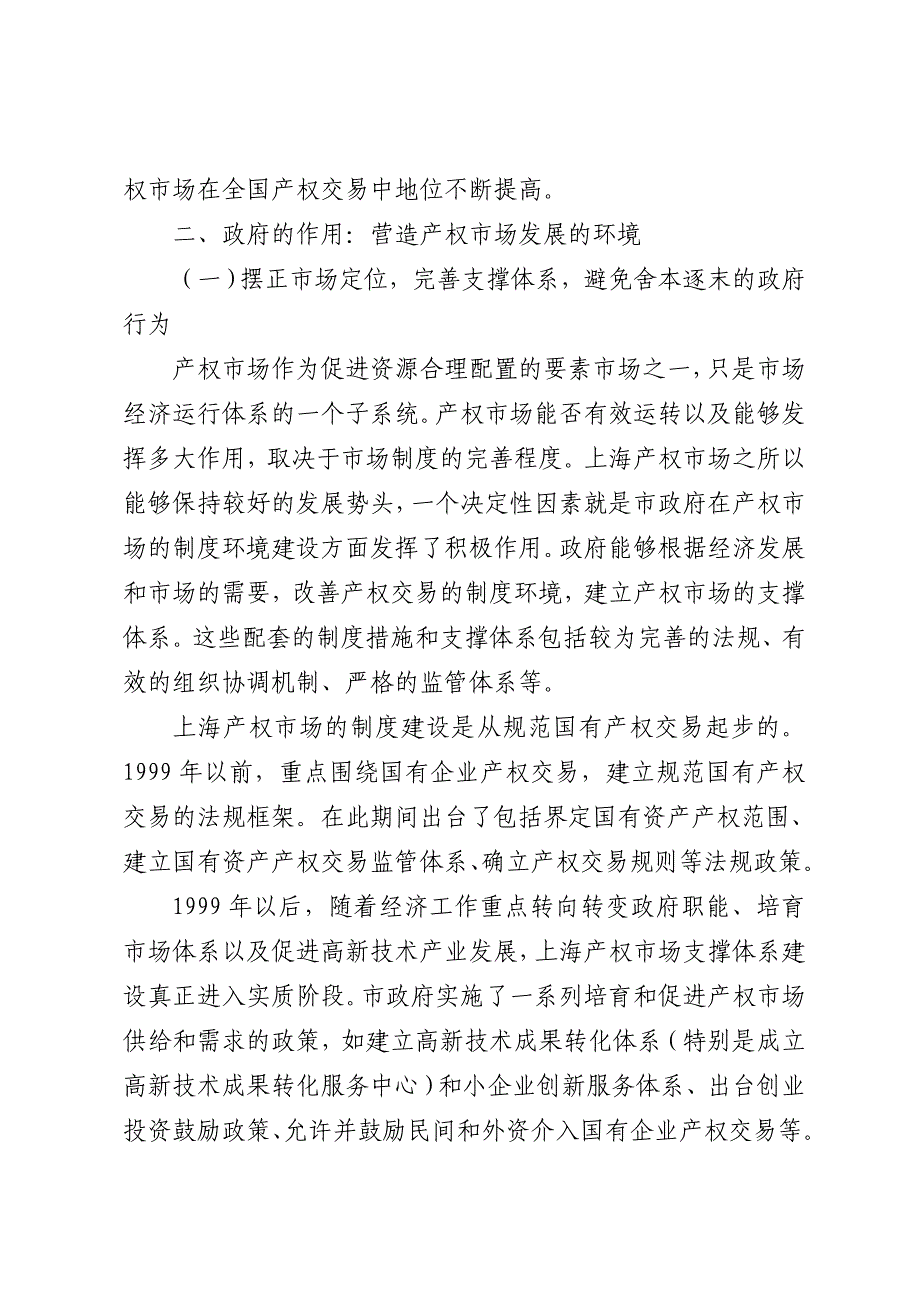 权市场在全国产权交易中地位不断提高。
二、政府的作用：营造产权市场发展的环境
（一）摆正市场定位，完善支撑体系，避免舍本逐末的政府
行为
产权市场作为促进资源合理配置的要素市场之一，只是市场
经济运行体系的一个子系统。产权市场能否有效运转以及能够发
挥多大作用，取决于市场制度的完善程度。上海产权市场之所以
能够保持较好的发展势头，一个决定性因素就是市政府在产权市
场的制度环境建设方面发挥了积极作用。政府能够根据经济发展
和市场的需要，改善产权交易的制度环境，建立产权市场的支撑
体系。这些配套的制度措施和支撑体系包括较为完善的法规、有
效的组织协调机制、严格的监管体系等。
上海产权市场的制度建设是从规范国有产权交易起步的。
1999年以前，重点围绕国有企业产权交易，建立规范国有产权
交易的法规框架。在此期间出台了包括界定国有资产产权范围、
建立国有资产产权交易监管体系、确立产权交易规则等法规政策。
1999年以后，随着经济工作重点转向转变政府职能、培育
市场体系以及促进高新技术产业发展，上海产权市场支撑体系建
设真正进入实质阶段。市政府实施了一系列培育和促进产权市场
供给和需求的政策，如建立高新技术成果转化体系（特别是成立
高新技术成果转化服务中心）和小企业创新服务体系、出台创业
投资鼓励政策、允许并鼓励民间和外资介入国有企业产权交易等。